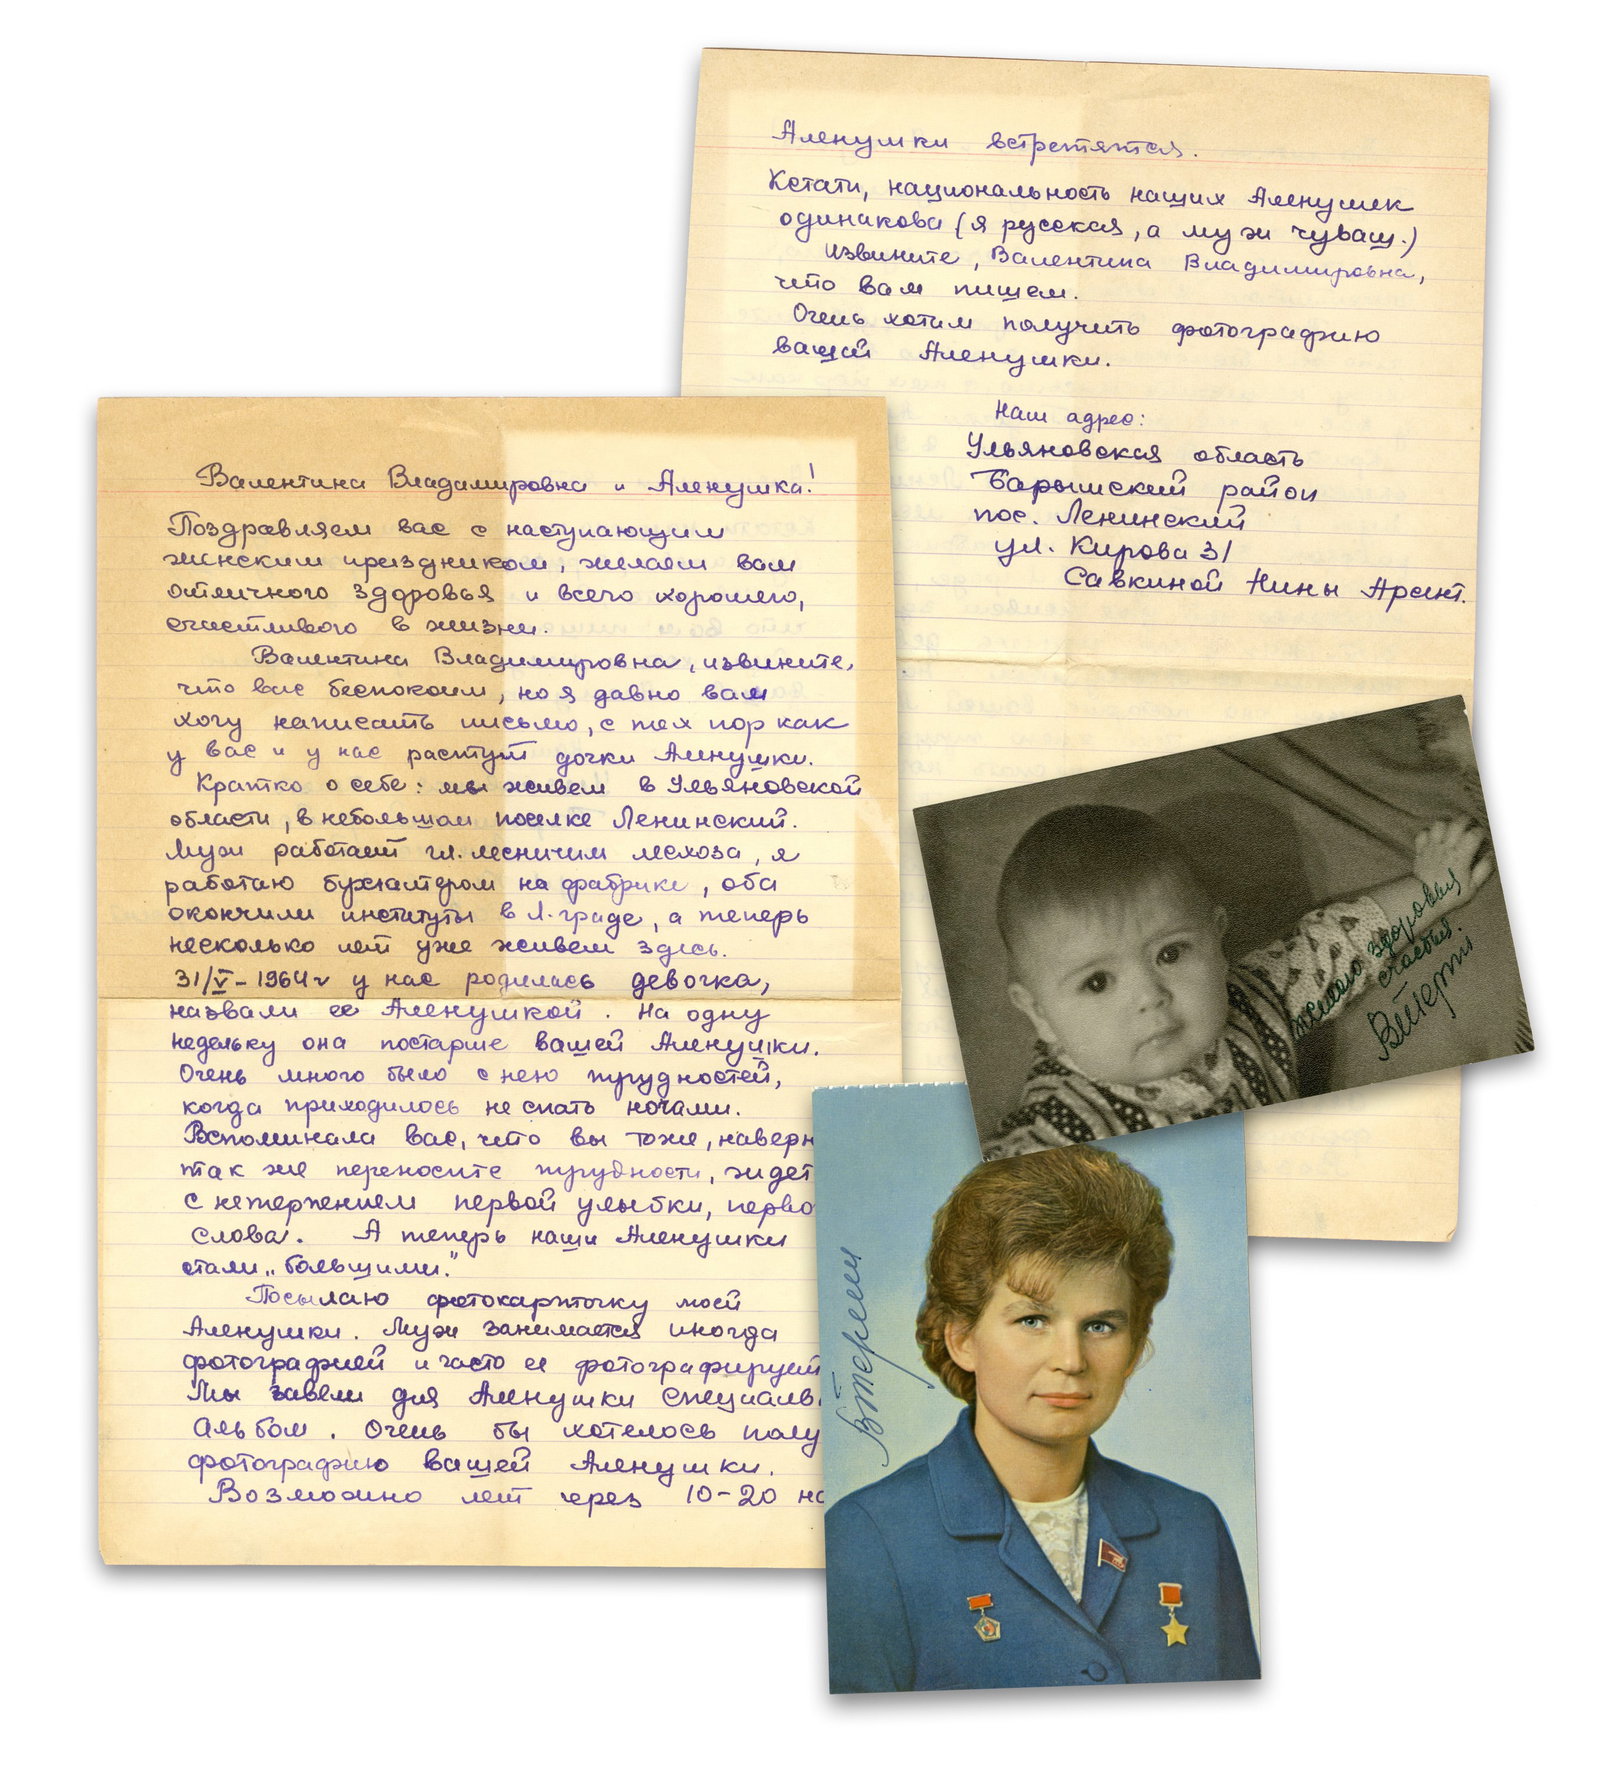 Валентина Владимировна и Аленушка!
Поздравляем вас с наступающим
женским праздником, желаем вам
отличного здоровья и всего хорошего,
счастливого в жизни.
Валентина Владимировна, извините,
что вас беспокоим, но я давно вам
хочу написать письмо, с тех пор как
у вас и у нас растут дочки Аленушки.
Кратко о себе: мы живем в Ульяновской
области, в небольшом поселке Ленинский.
Муж работает гл. лесничим лесхоза, я
работаю бухгалтером на фабрике, оба
окончили институты в Л.граде, а теперь
несколько лет уже живем здесь.
31/V-1964г у нас родилась девочка,
назвали ее Аленушкой. На одну
недельку она постарше вашей Аленушки.
Очень много было с нею трудностей,
когда приходилось не спать ночами.
Вспоминала вас, что вы тоже, наверн
так же переносите трудности, ждет
с нетерпением первой улыбки, перво
слова. А теперь наши Аленушки
стали „большими."
Посылаю фотокарточку моей
Аленушки. Муж занимается иногда
фотографией и часто ее фотографирует
Мы завели для Аленушки специаль
альбом. Очень бы хотелось полу
фотографию вашей Аленушки.
Возможно лет через 10-20 на
Аленушки встретятся.
Кстати, национальность наших Аленушек
одинакова (я русская, а муж чуваш.)
Извините, Валентина Владимировна,
что вам пишем.
Очень хотим получить фотографию
вашей Аленушки.
Наш адрес:
Ульяновская область
Барышский район
пос. Ленинский
ул. Кирова 31
Савкиной Нины Арсент.
желаю здоровья
счастья.
ВТереш
ВТереш